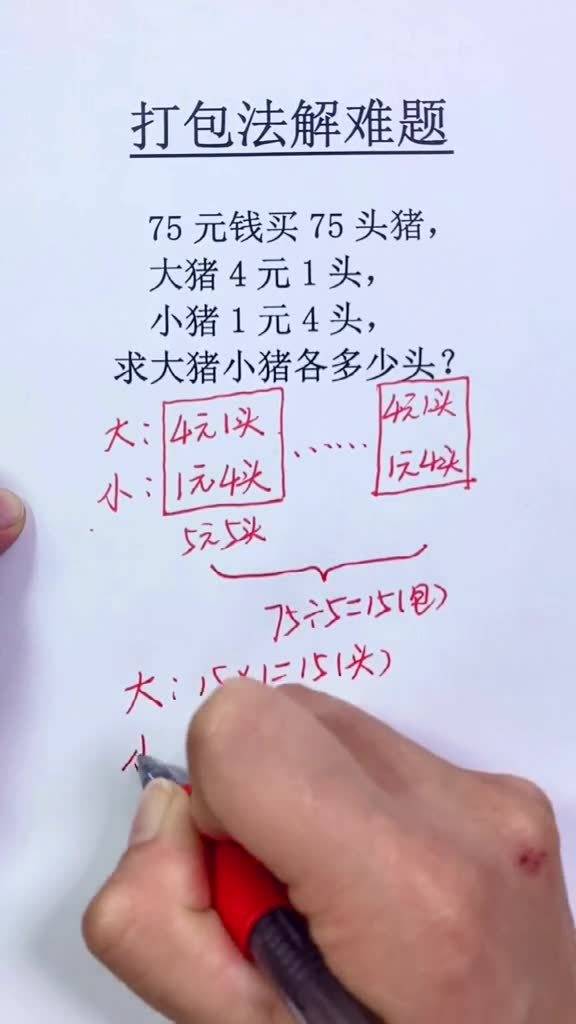 打包法解难题
75元钱买75头猪，
大猪4元1头，
小猪1元4头，
求大猪小猪各多少头？
大：4元1头 …… 4元1头
小：1元4头 1元4头
5元5头
75÷5=15(包)
大：15×1=15(头)
小